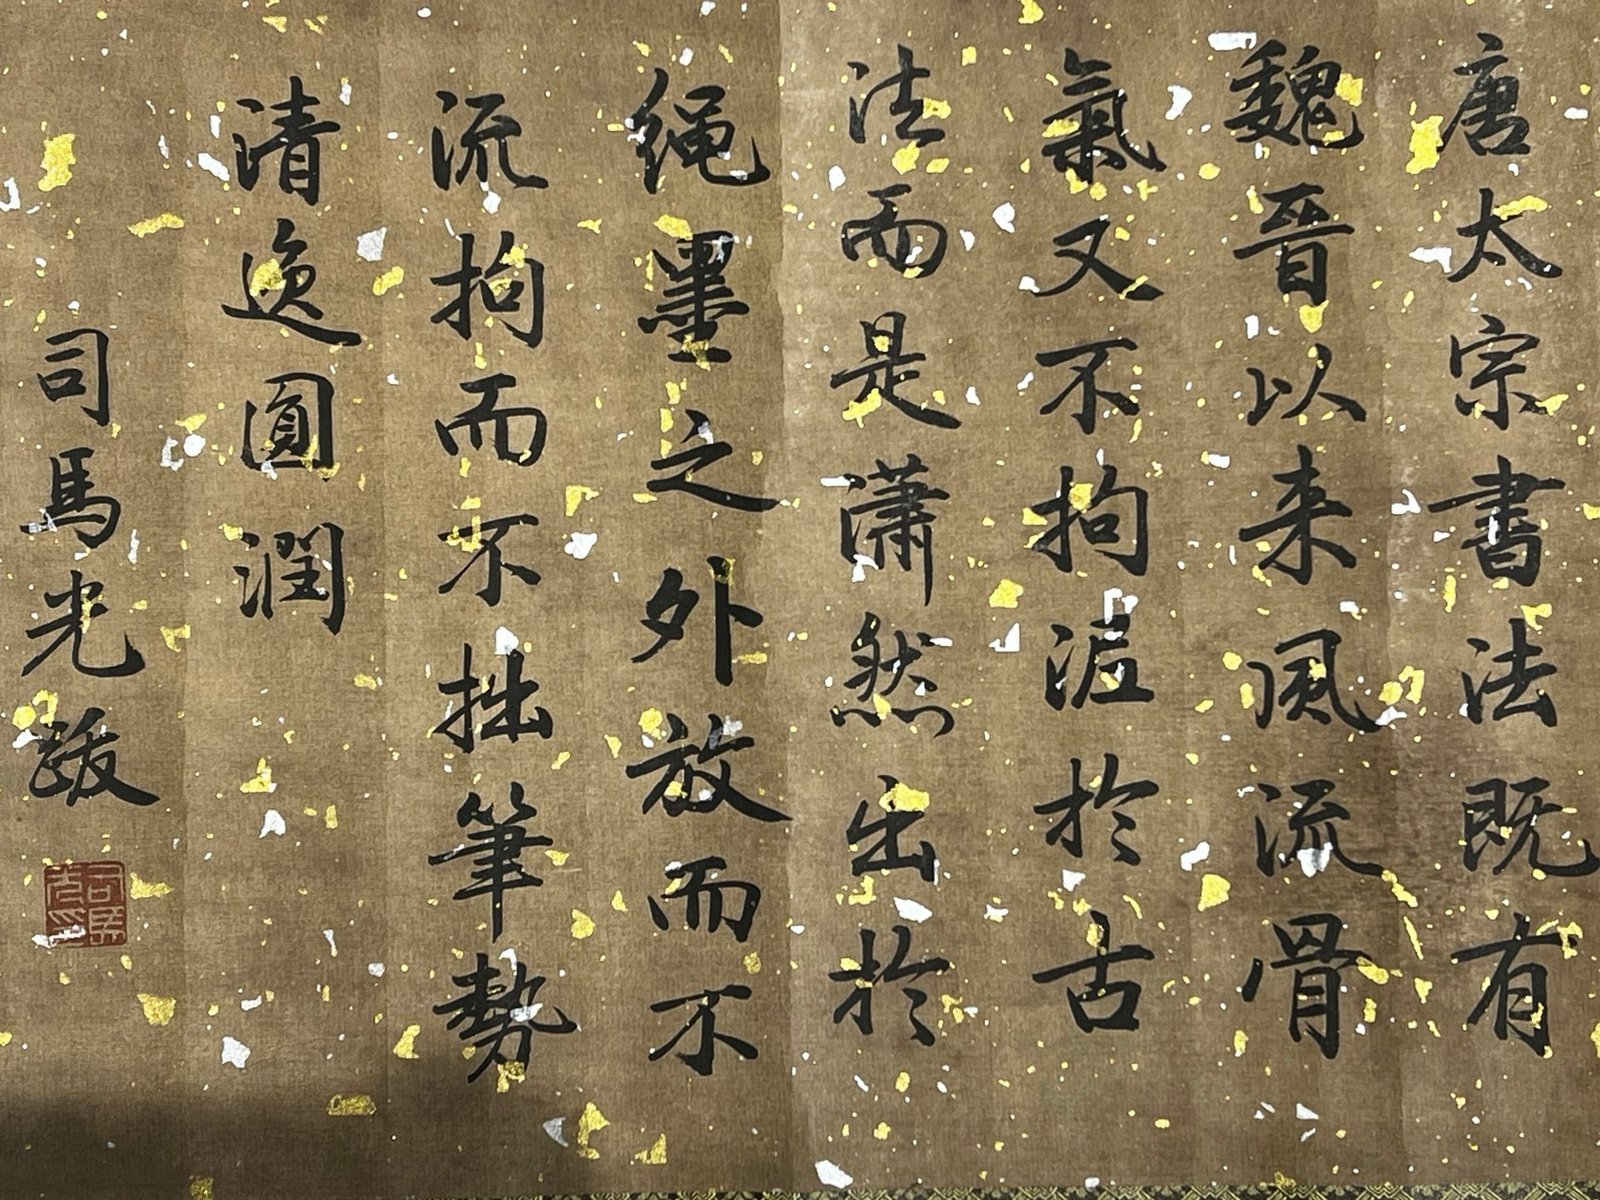 唐太宗書法既有
魏晋以来風流骨
氣又不拘泥於古
法而是瀟然出於
绳墨之外放而不
流拘而不拙筆勢
清逸圓潤
司馬光跋
司馬光印